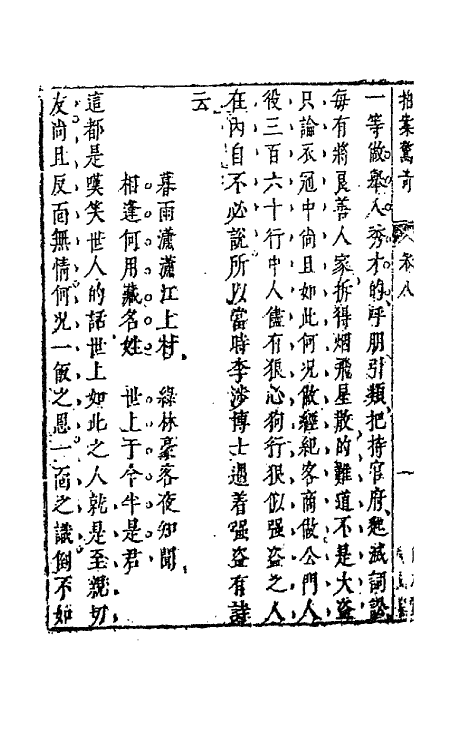 拍案驚奇 卷八 一
一等做舉人秀才的呼朋引類把持官府起滅詞訟
每有將良善人家拆得烟飛星散的難道不是大盜
只論衣冠中尚且如此何況做經紀客商做公門人
役三百六十行中人儘有狠心狗行狠似强盜之人
在內自不必說所以當時李涉博士遇着强盜有詩
云
暮雨瀟瀟江上村 綠林豪客夜知聞
相逢何用藏名姓 世上于今半是君
這都是嘆笑世人的話世上如此之人就是至親切
友尚且反面無情何況一飯之恩一面之識倒不如